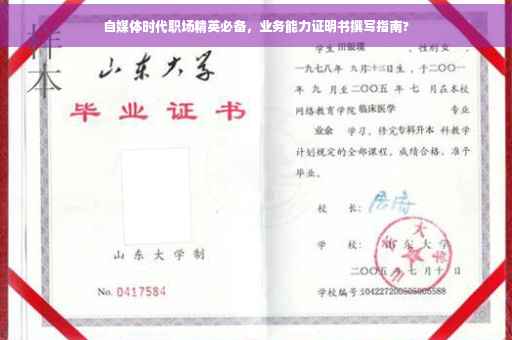 自媒体时代职场精英必备，业务能力证明书撰写指南?
样本
山东大学
毕业证书
山东大学制
No. 0417584
学生 田银璞 ，性别 女 ，
一九七八年 九月十三日生，于二〇〇一
年 九 月至二〇〇五 年 七 月在本校
网络教育学院 临床医学 专业
业余 学习，修完专科升本 科教学
计划规定的全部课程，成绩合格，准予
毕业。
校 长：
学 校： 山东大学
二〇〇五年七月十日
学校编号:104227200505005588